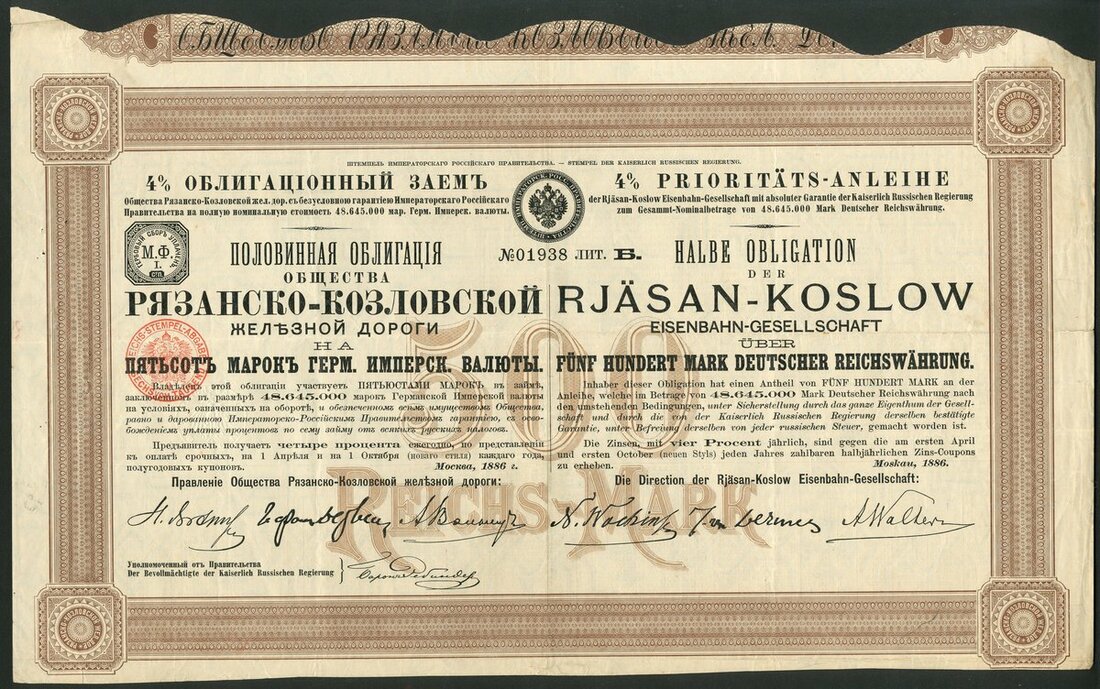 ШТЕМПЕЛЬ ИМПЕРАТОРСКАГО РОССІЙСКАГО ПРАВИТЕЛЬСТВА. — STEMPEL DER KAISERLICH RUSSISCHEN REGIERUNG.
4% ОБЛИГАЦІОННЫЙ ЗАЕМЪ
Общества Рязанско-Козловской жел. дор. съ безусловною гарантіею Императорскаго Россійскаго
Правительства на полную номинальную стоимость 48.645.000 мар. Герм. Имперск. валюты.
4% PRIORITÄTS-ANLEIHE
der Rjäsan-Koslow Eisenbahn-Gesellschaft mit absoluter Garantie der Kaiserlich Russischen Regierung
zum Gesammt-Nominalbetrage von 48.645.000 Mark Deutscher Reichswährung.
М.Ф.
I.
№01938 ЛИТ. В.
ПОЛОВИННАЯ ОБЛИГАЦІЯ
ОБЩЕСТВА
РЯЗАНСКО-КОЗЛОВСКОЙ
ЖЕЛѢЗНОЙ ДОРОГИ
НА
ПЯТЬСОТЪ МАРОКЪ ГЕРМ. ИМПЕРСК. ВАЛЮТЫ.
Владѣлецъ этой облигаціи участвуетъ ПЯТЬЮСТАМИ МАРОКЪ въ займѣ,
заключенномъ въ размѣрѣ 48.645.000 марокъ Германской Имперской валюты
на условіяхъ, означенныхъ на оборотѣ, и обезпеченному всѣмъ имуществомъ Общества,
равно и дарованною Императорско-Россійскимъ Правительствомъ гарантіею, съ осво-
божденіемъ уплаты процентовъ по сему займу отъ всякихъ русскихъ налоговъ.
Предъявитель получаетъ четыре процента ежегодно, по представленіи
къ оплатѣ срочныхъ, на 1 Апрѣля и на 1 Октября (новаго стиля) каждаго года,
полугодовыхъ купоновъ. Москва, 1886 г.
Правленіе Общества Рязанско-Козловской желѣзной дороги:
HALBE OBLIGATION
DER
RJÄSAN-KOSLOW
EISENBAHN-GESELLSCHAFT
ÜBER
FÜNF HUNDERT MARK DEUTSCHER REICHSWÄHRUNG.
Inhaber dieser Obligation hat einen Antheil von FÜNF HUNDERT MARK an der
Anleihe, welche im Betrage von 48.645.000 Mark Deutscher Reichswährung nach
den umstehenden Bedingungen, unter Sicherstellung durch das ganze Eigenthum der Gesell-
schaft und durch die von der Kaiserlich Russischen Regierung derselben bestätigte
Garantie, unter Befreiung derselben von jeder russischen Steuer, gemacht worden ist.
Die Zinsen, mit vier Procent jährlich, sind gegen die am ersten April
und ersten October (neuen Styls) jeden Jahres zahlbaren halbjährlichen Zins-Coupons
zu erheben. Moskau, 1886.
Die Direction der Rjäsan-Koslow Eisenbahn-Gesellschaft:
500
REICHS-MARK
Уполномоченный отъ Правительства
Der Bevollmächtigte der Kaiserlich Russischen Regierung